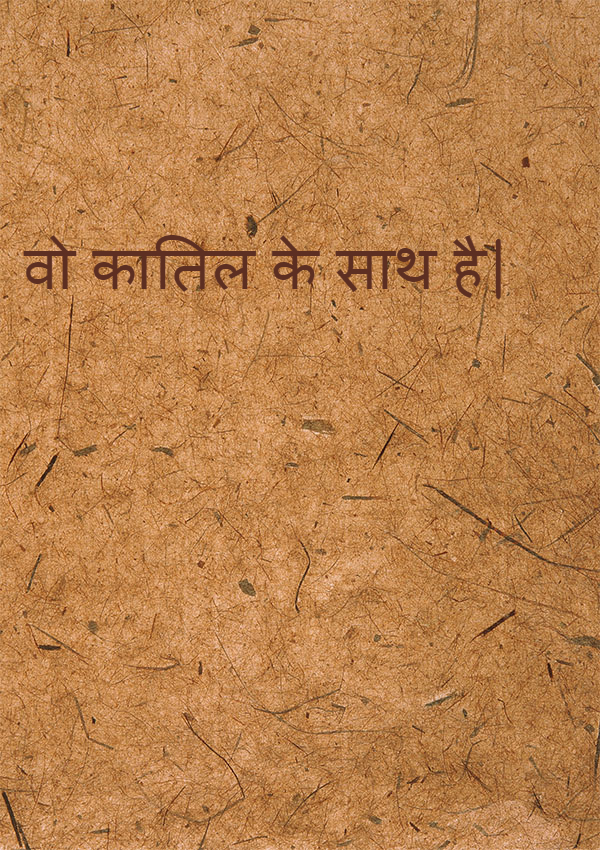 वो कातिल के साथ है|